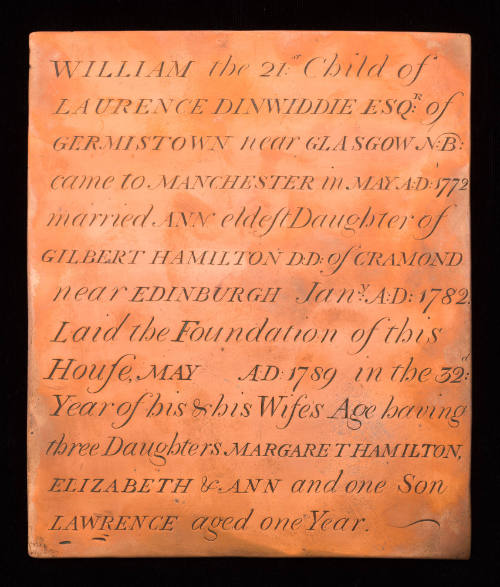 WILLIAM the 21:st Child of
LAURENCE DINWIDDIE ESQ:R of
GERMISTOWN near GLASGOW N:B:
came to MANCHESTER in MAY A:D: 1772
married ANN eldeſt Daughter of
GILBERT HAMILTON D:D: of CRAMOND
near EDINBURGH Jan:y. A:D: 1782.
Laid the Foundation of this
Houſe, MAY A.D: 1789 in the 32:d
Year of his & his Wifes Age having
three Daughters MARGARET HAMILTON,
ELIZABETH & ANN and one Son
LAWRENCE aged one Year.